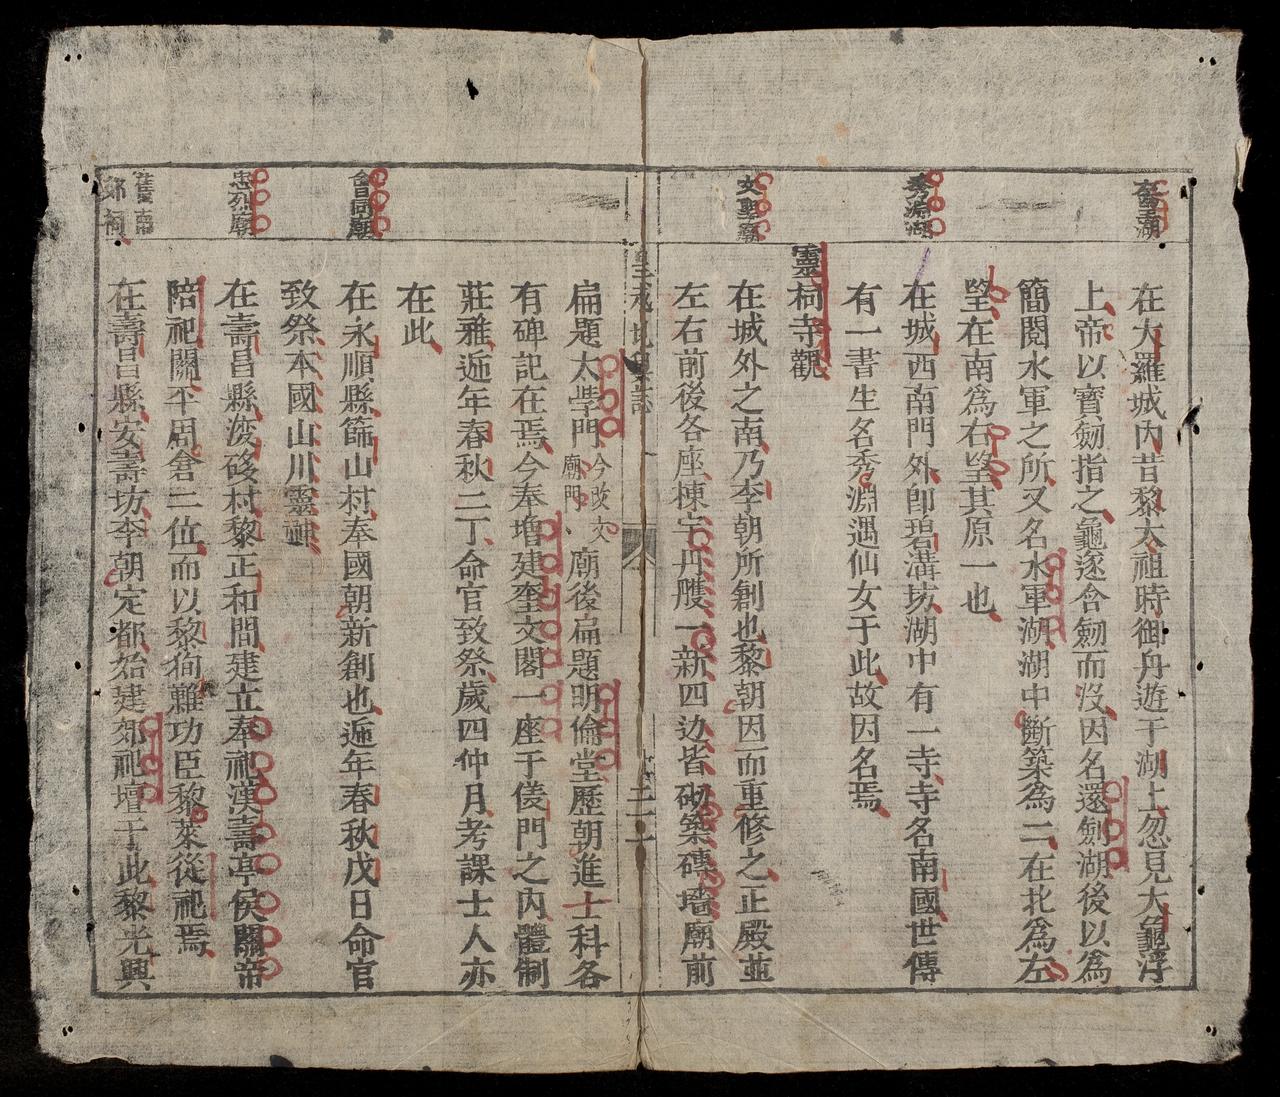 在大羅城內昔黎太祖時御舟遊于湖上忽見大龜浮
上帝以寶劒指之龜遂含劒而沒因名還劍湖後以為
簡閱水軍之所又名水軍湖湖中斷築為二在北為左
望在南為右望其原一也
秀淵湖
在城西南門外即碧溝坊湖中有一寺寺名南國世傳
有一書生名秀淵遇仙女于此故因名焉
靈祠寺觀
文聖廟
在城外之南乃李朝所創也黎朝因而重修之正殿並
左右前後各座棟宇丹雘一新四边皆砌築磚墻廟前
皇越地輿誌 二十二
扁題太學門今改文廟門廟後扁題明倫堂歷朝進士科各
有碑記在焉今奉增建奎文閣一座于儀門之內體制
莊雅逓年春秋二丁命官致祭歲四仲月考課士人亦
在此
會同廟
在永順縣篩山村奉國朝新創也逓年春秋戊日命官
致祭本國山川靈神
忠烈廟
在壽昌縣渡磋村黎正和間建立奉祀漢壽亭侯關帝
陪祀關平周倉二位而以黎狗黐功臣黎萊從祀焉
郊祠
在壽昌縣安壽坊李朝定都始建郊祀壇于此黎光興